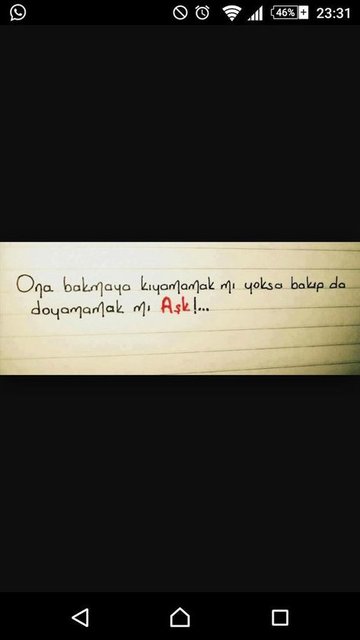 46% 23:31
Ona bakmaya kıyamamak mı yoksa bakıp da
doyamamak mı Aşk!...